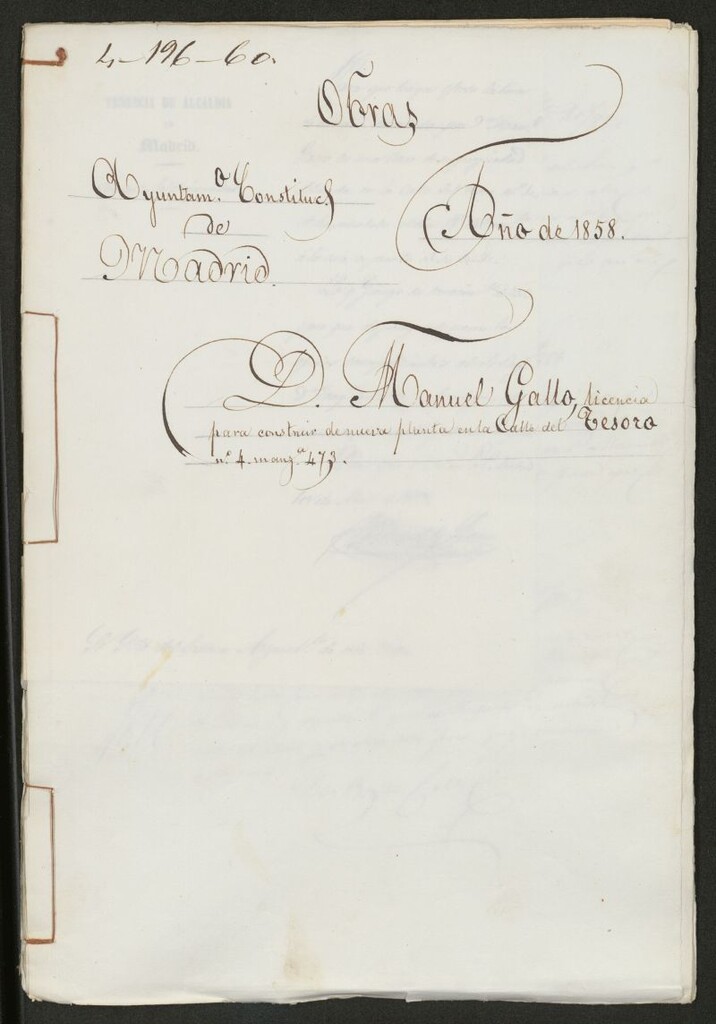 4-196-60.
Obras
Ayuntam.º Constitucl
de
Madrid.
Año de 1858.
D. Manuel Gallo, licencia
para construir de nueva planta en la Calle del Tesoro
nº 4. manz.ª 473.